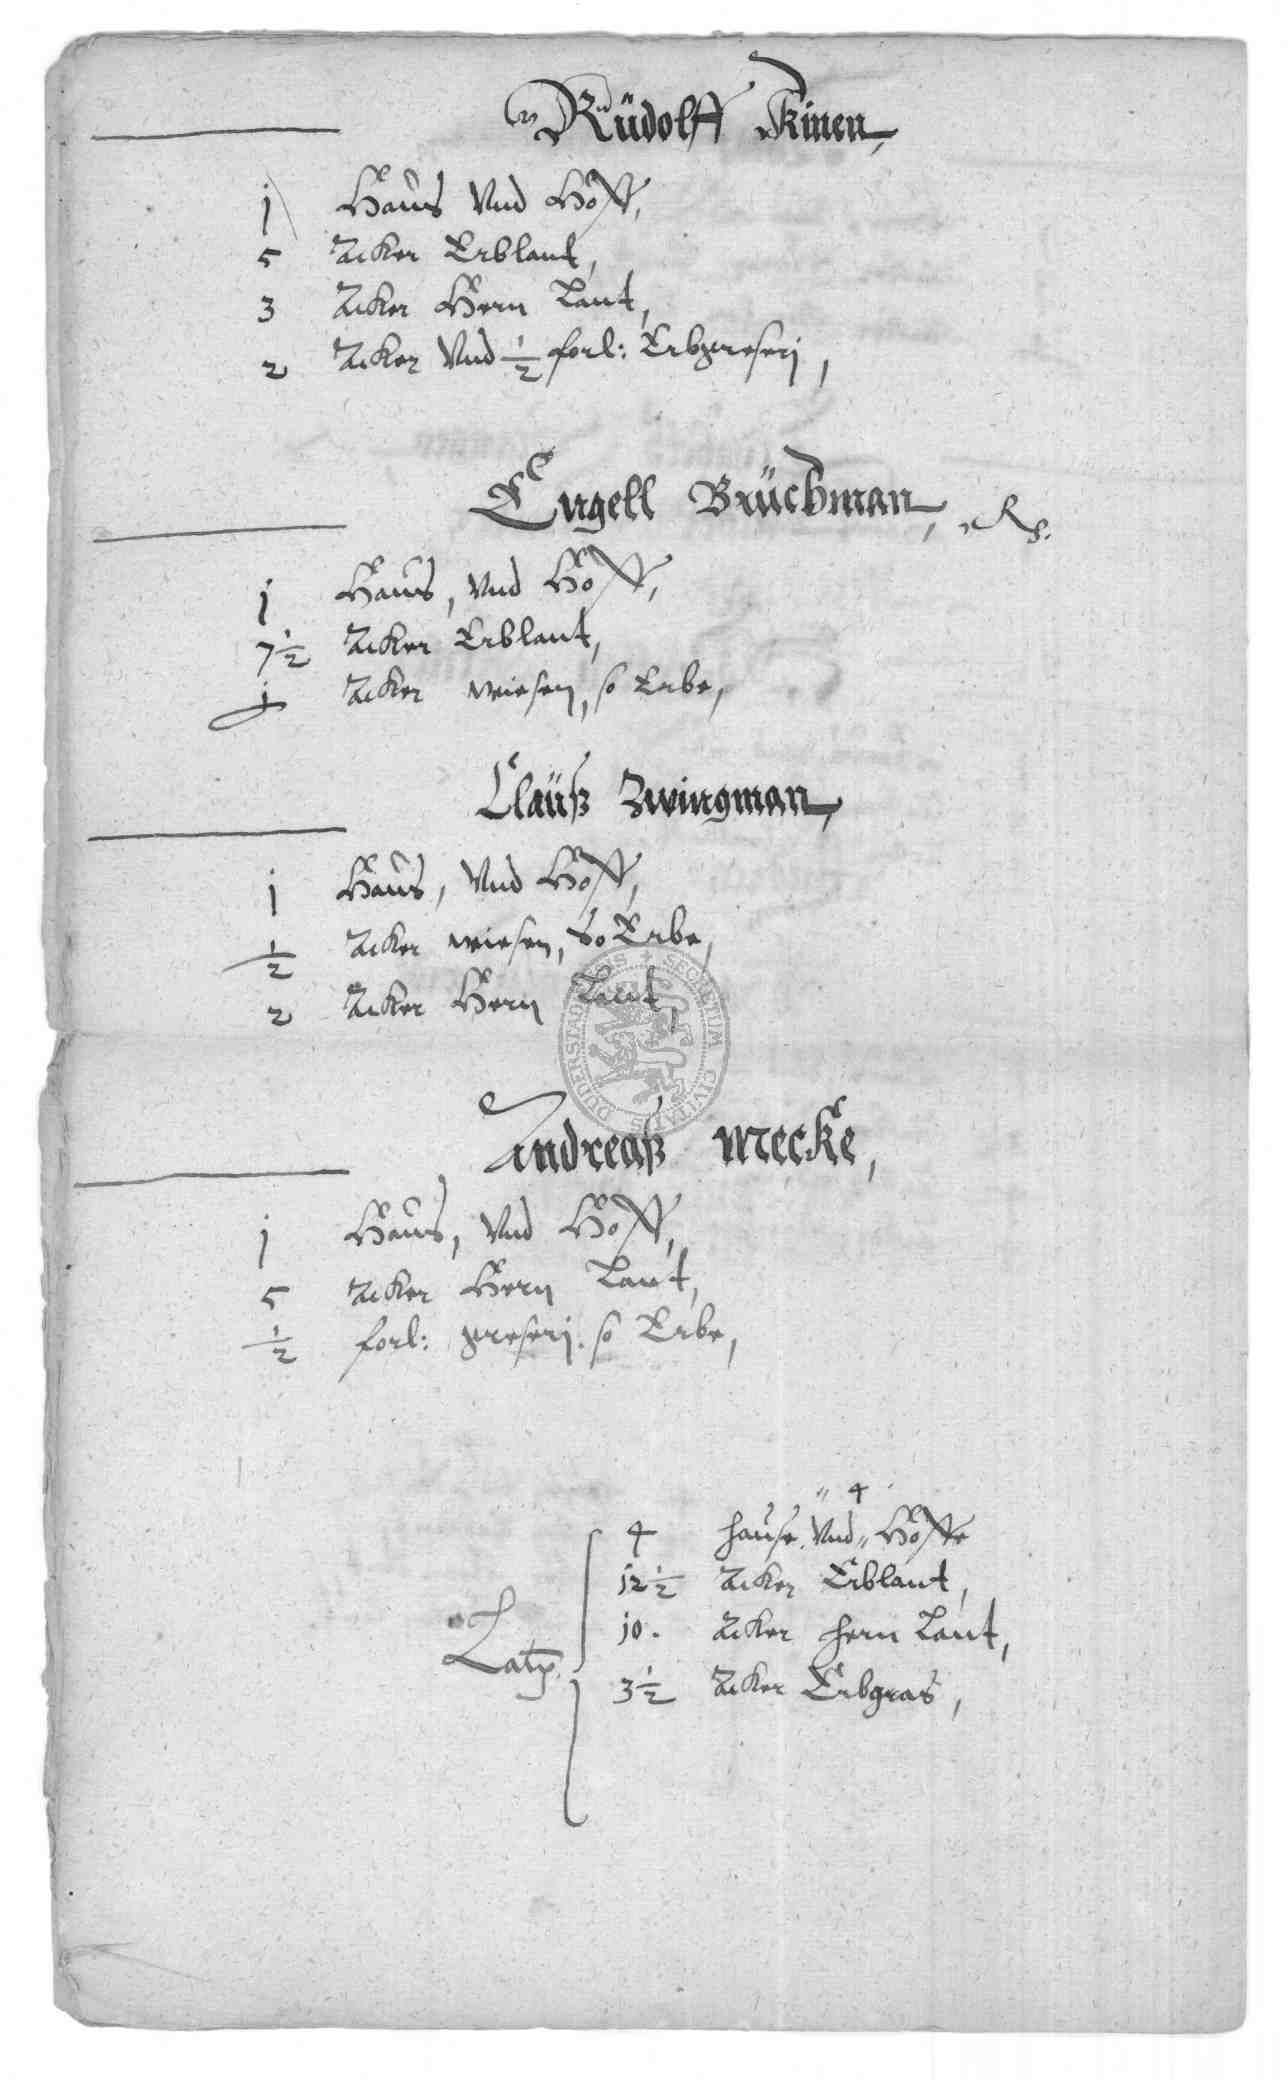 Rüdolff Kinen,
j Haus Vnd Hoff,
5 Acker Erblant,
3 Acker Hern Lant,
2 Acker Vnd 1/2 forl: Erbgreserj,
Engell Brüchman,
j Haus, Vnd Hoff,
7 1/2 Acker Erblant,
j Acker wiesen, so Erbe,
Claüß Zwingman,
j Haus, Vnd Hoff,
1/2 Acker wiesen, so Erbe,
2 Acker Hern Lant,
SECRETUM CIVITATIS DUDERSTADENSIS
Andreaß Mecke,
j Haus, Vnd Hoff,
5 Acker Hern Lant,
1/2 forl: greserj. so Erbe,
4
4 hause Vnd Höffe
12 1/2 Acker Erblant,
10. Acker Hern Lant,
Latꝫ
3 1/2 Acker Erbgras,